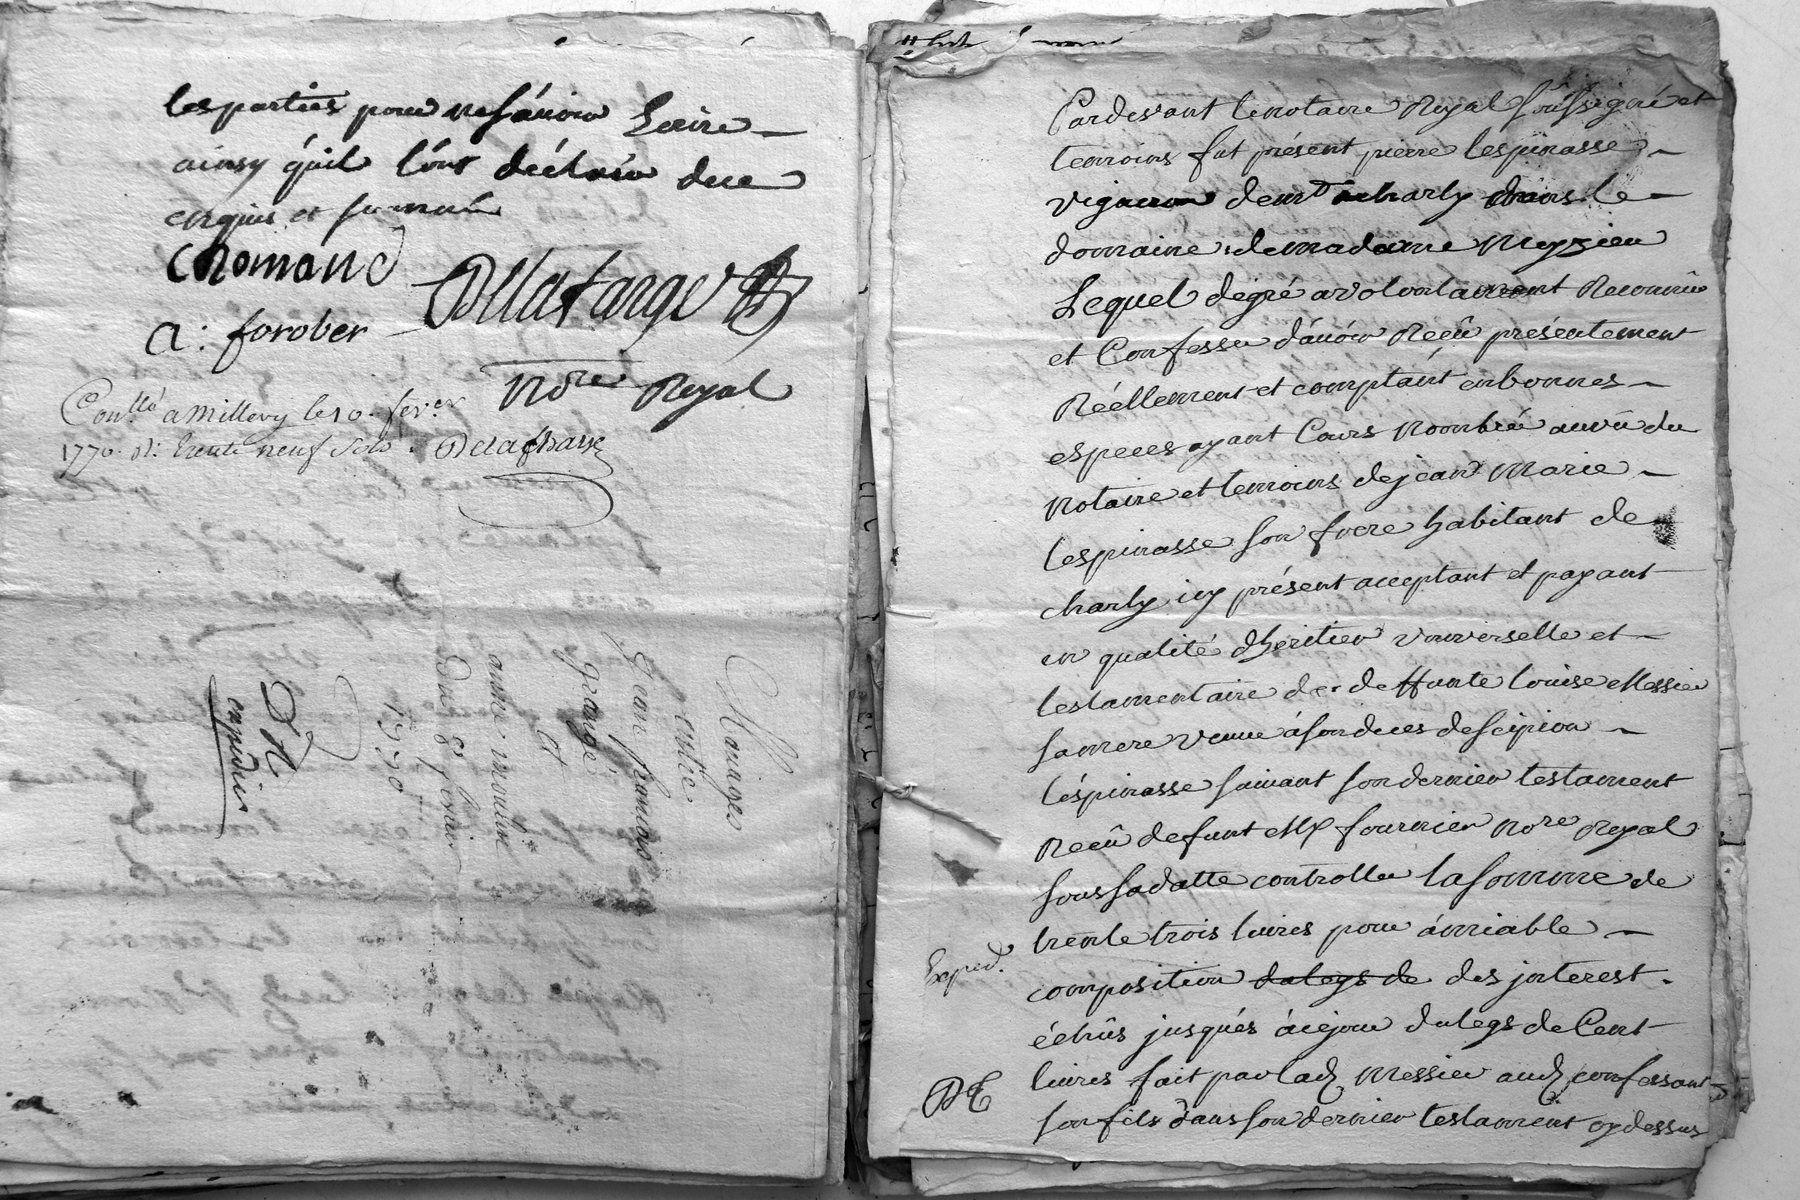 les parties pour ne sçavoir Ecrire
ainsy quil l'ont déclaré de ce
enquis et sommé
CRomand
Dellafarge
a: forober
Nore Royal
Conllé a Millery le 10 fever
1770 R: trente neuf sols. Delachasse
Mariages
entre
Jean francois
grange
et
antre moulin
Du 8 fevrier
1770
DR
expedié
Pardevant le notaire Royal soussigné et
temoins fut présent pierre lespinasse
vigneron demt a charly dans le
domaine de madame Meyzieu
Lequel de gré a volontairement Reconnû
et Confessé d'avoir Reçû présentement
Réellement et comptant en bonnes
especes ayant Cours Nombré au vû du
Notaire et temoins de jean Marie
lespinasse son frere habitant de
charly icy présent acceptant et payant
en qualité d'heritier universelle et
testamentaire de deffunte louise Messier
sa mere veuve à son deces de scipion
léspinasse suivant son dernier testament
Reçû defunt Me fournier Nore Royal
sous sa datte controllé la somme de
trente trois livres pour ámiable
Exped.
composition du legs de des jnterest
échûs jusqués á ce jour du legs de Cent
livres fait par lad. Messier aud. confessant
DE
son fils dans son dernier testament cy dessus